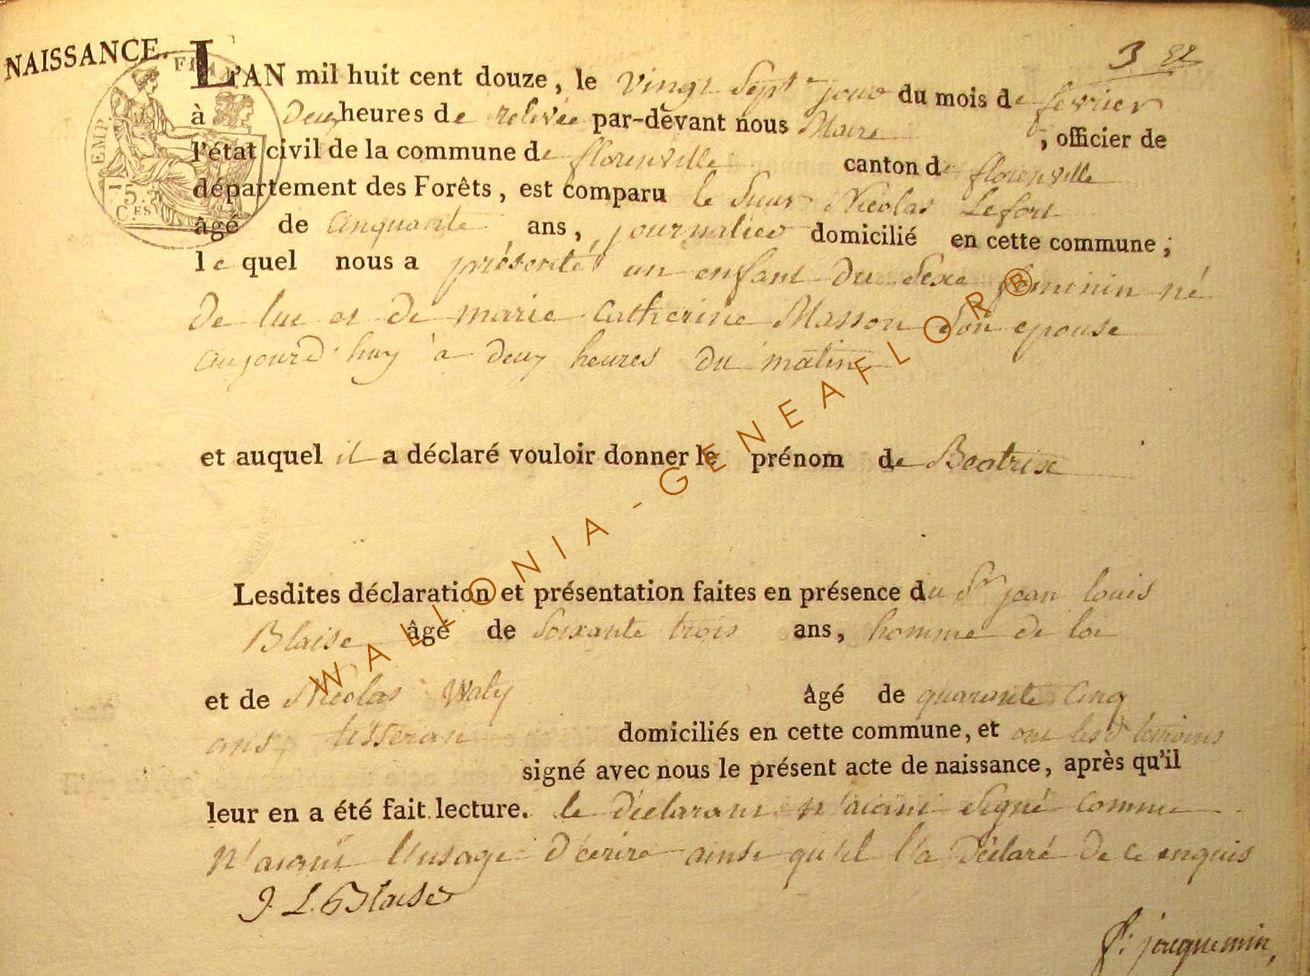 3
NAISSANCE.
L'AN mil huit cent douze, le vingt Sept jour du mois de fevrier
à deux heures de relevée par-devant nous Maire, officier de
l'état civil de la commune de florenville canton de florenville
département des Forêts, est comparu le Sieur Nicolas Lefort
âgé de cinquante ans, journalier domicilié en cette commune,
le quel nous a présenté un enfant du Sexe feminin né
de lui et de marie Catherine Masson Son epouse
aujourd'huy à deux heures du matin
et auquel il a déclaré vouloir donner le prénom de Beatrix
Lesdites déclaration et présentation faites en présence du Sr jean louis
Blaise âgé de Soixante trois ans, homme de loi
et de Nicolas Waty âgé de quarante cinq
ans tisseran domiciliés en cette commune, et ont lesd temoins
signé avec nous le présent acte de naissance, après qu'il
leur en a été fait lecture. le déclarant n'aiant Signé comme
n'aiant l'usage d'écrire ainsi qu'il l'a Déclaré de ce enquis
J. L. Blaise
jacquemin
EMP. FRAN
75.
C.ES
WALLONIA-GENEAFLOR®